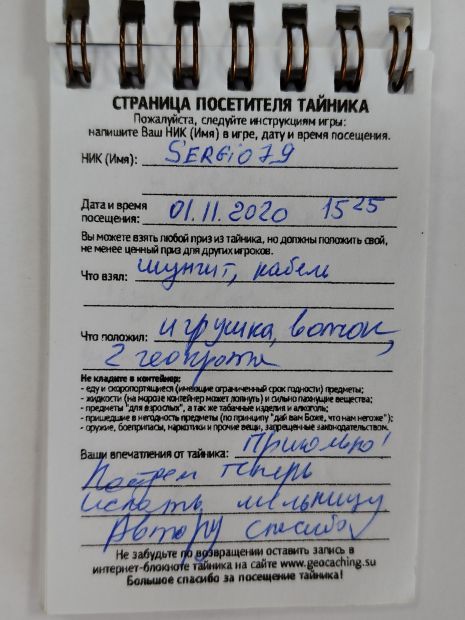 СТРАНИЦА ПОСЕТИТЕЛЯ ТАЙНИКА
Пожалуйста, следуйте инструкциям игры:
напишите Ваш НИК (Имя) в игре, дату и время посещения.
НИК (Имя): SERGIO79
Дата и время
посещения: 01.11.2020 15 25
Вы можете взять любой приз из тайника, но должны положить свой,
не менее ценный приз для других игроков.
Что взял: шунгит, кабель
Что положил: игрушка,
2
Не кладите в контейнер:
- еду и скоропортящиеся (имеющие ограниченный срок годности) предметы;
- жидкости (на морозе контейнер может лопнуть) и сильно пахнущие вещества;
- предметы "для взрослых", а так же табачные изделия и алкоголь;
- пришедшие в негодность предметы (по принципу "дай вам Боже, что нам негоже");
- оружие, боеприпасы, наркотики и прочие вещи, запрещенные законодательством.
Ваши впечатления от тайника: Прикольно!
теперь
искать мельницу
Автору спасибо
Не забудьте по возвращении оставить запись в
интернет-блокноте тайника на сайте www.geocaching.su
Большое спасибо за посещение тайника!